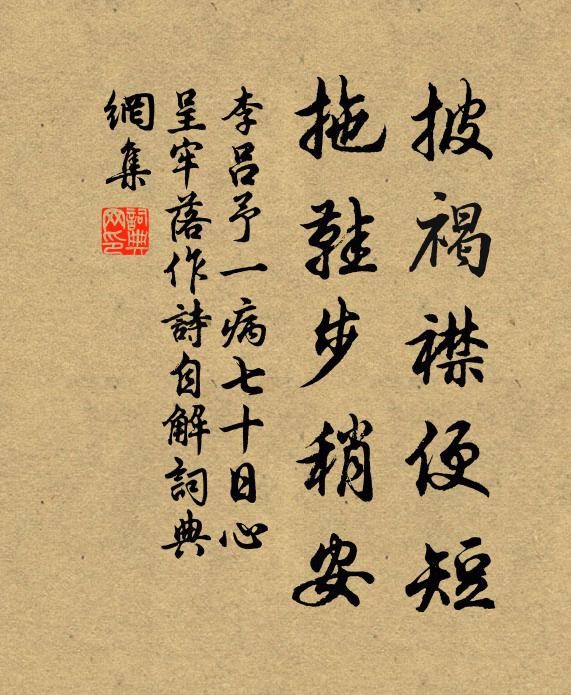 披褐襟便短
拖鞋步稍安
李呂予一病七十日心
呈牢落作詩自解詞典
網集
詞典网印